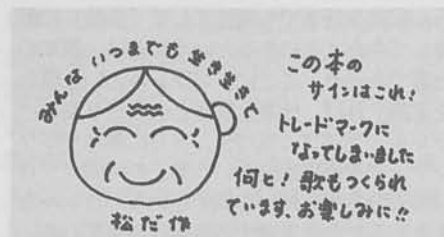 みんな いつまでも 生き生きて
松だ作
この本の
サインはこれ!
トレードマークに
なってしまいました
何と! 歌もつくられ
ています、お楽しみに!!